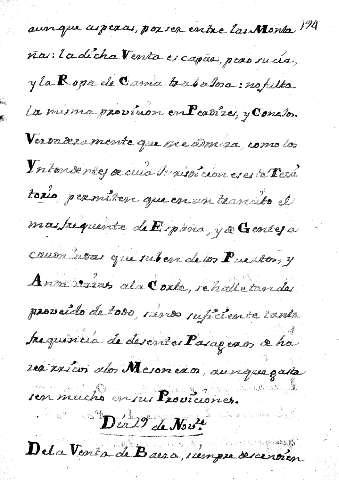 124
aunque asperas, por ser entre las Monta
ñas: la dicha Venta es capas, pero sucia,
y la Ropa de Cama trabajosa: no falta
la misma provicion en Perdizes, y Conejos.
Verdaderamente que me admira como los
Yntendentes de cuia Jurisdicion es este Teri
torio permiten que en un transito el
mas frequente de España, y de Gentes a
comodadas que suben de los Puertos, y
Americas a la Corte, se halle tan des
proveido de todo, siendo suficiente tanta
frequencia de desentes Pasageros a ha
zer rricos a los Mesoneros, aunque gasta
sen mucho en sus Proviciones.
Dia 19 de Nov.re
De la Venta de Baeza, siempre descendien